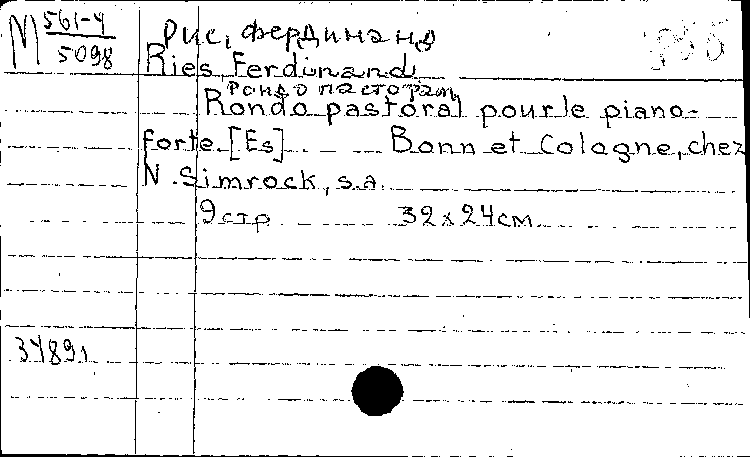 М 561-4
5098
Рис, Фердинанд
Ries, Ferdinand
Рондо пастораль
Rondo pastoral pour le piano-
forte. [Es] Bonn et Cologne, chez
N. Simrock, s.a.
9 стр 32x24 см
34891